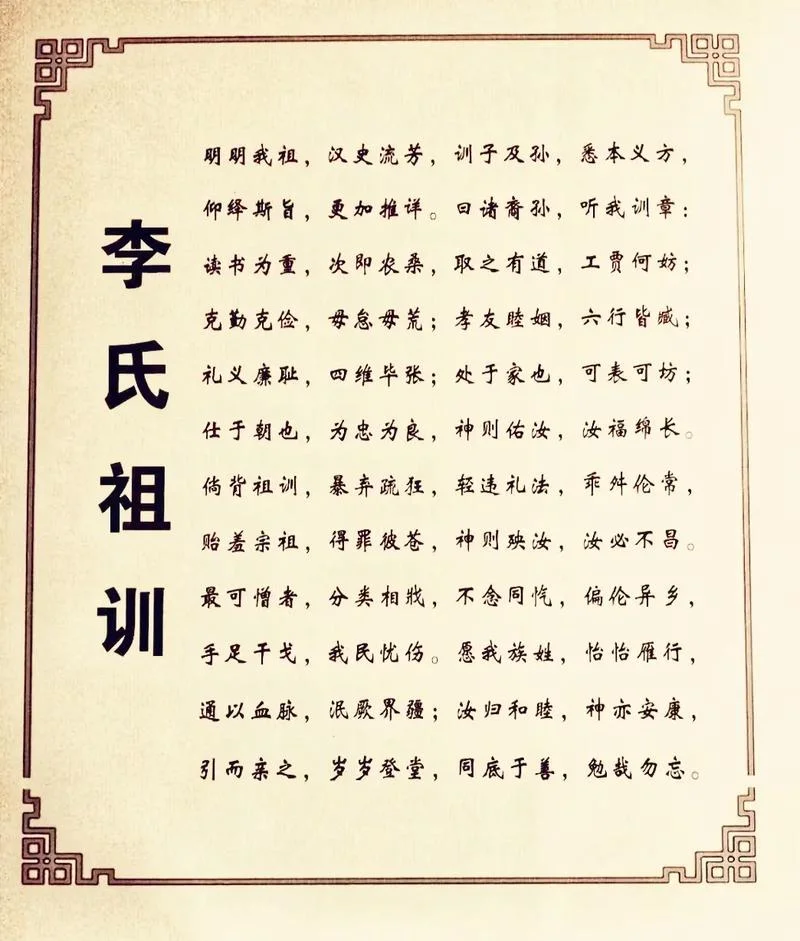 李氏祖训
明明我祖，汉史流芳，训子及孙，悉本义方，
仰绎斯旨，更加推详。曰诸裔孙，听我训章：
读书为重，次即农桑，取之有道，工贾何妨；
克勤克俭，毋怠毋荒；孝友睦姻，六行皆臧；
礼义廉耻，四维毕张；处于家也，可表可坊；
仕于朝也，为忠为良，神则佑汝，汝福绵长。
倘背祖训，暴弃疏狂，轻违礼法，乖舛伦常，
贻羞宗祖，得罪彼苍，神则殃汝，汝必不昌。
最可憎者，分类相戕，不念同忾，偏伦异乡，
手足干戈，我民忧伤。愿我族姓，怡怡雁行，
通以血脉，泯厥界疆；汝归和睦，神亦安康，
引而亲之，岁岁登堂，同底于善，勉哉勿忘。